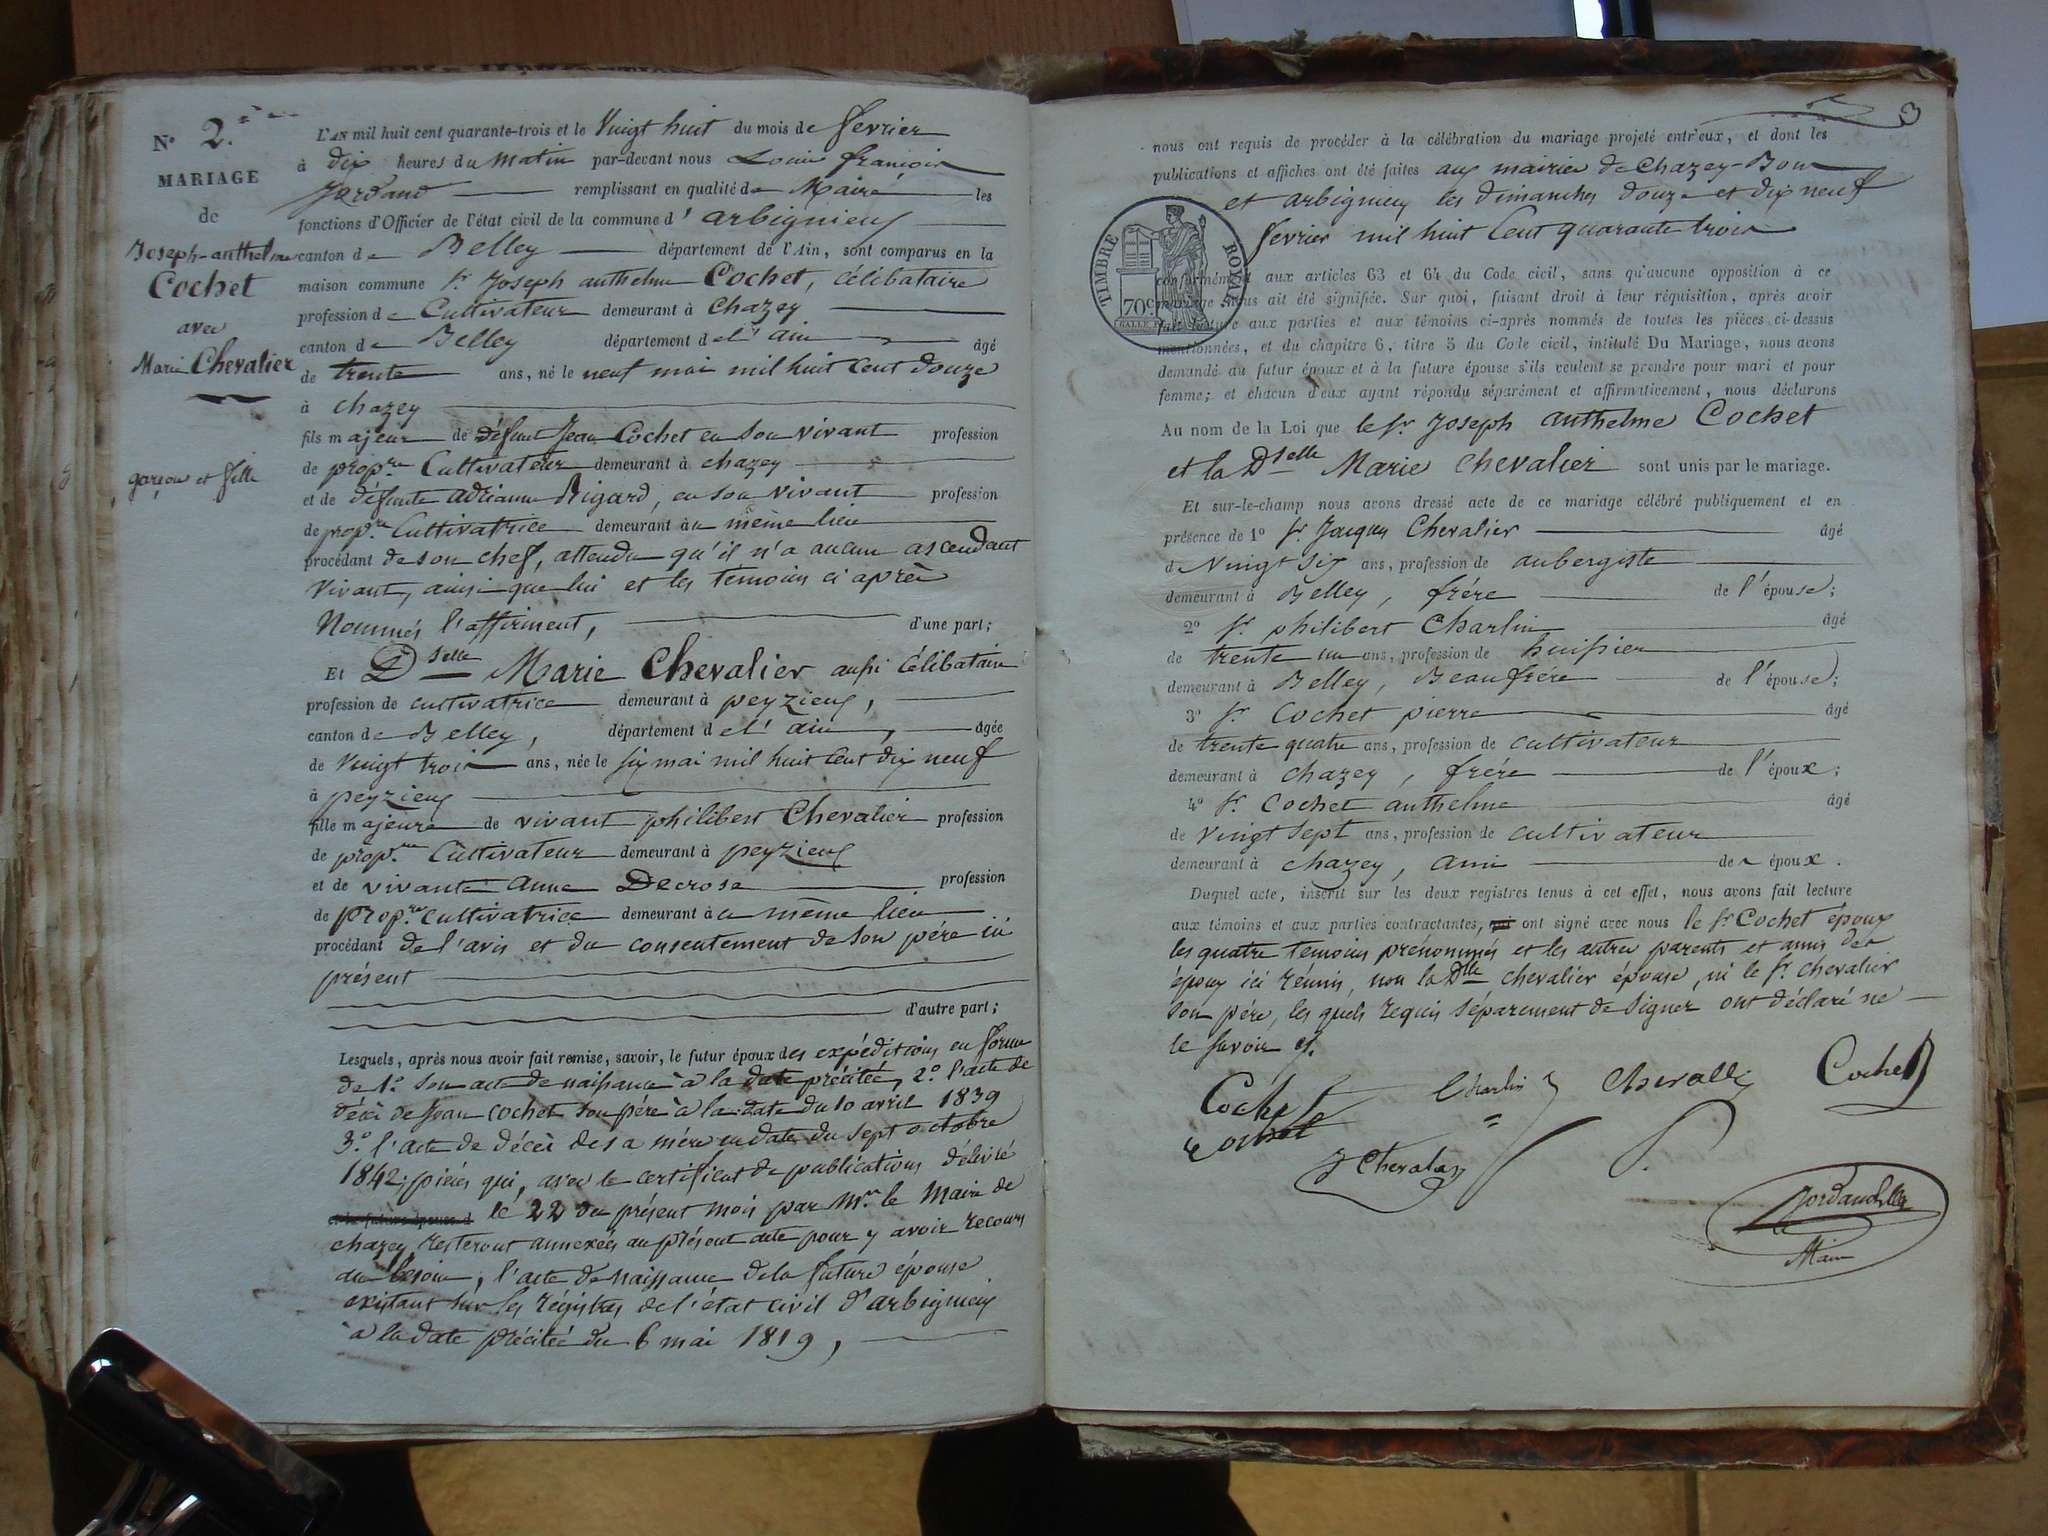 N° 2.
MARIAGE
de
Joseph-anthelme
Cochet
avec
Marie Chevalier
garçon et fille
L'AN mil huit cent quarante-trois et le Vingt huit du mois de fevrier
à dix heures du matin par-devant nous Louis françois
Jordand remplissant en qualité de Maire les
fonctions d'Officier de l'état civil de la commune d'arbignieux
canton de Belley département de l'Ain, sont comparus en la
maison commune Sr. Joseph anthelme Cochet, célibataire
profession de Cultivateur demeurant à chazey
canton de Belley département de l'ain âgé
de trente ans, né le neuf mai mil huit cent douze
à chazey
fils majeur de défunt Jean Cochet en son vivant profession
de propre Cultivateur demeurant à chazey
et de défunte adrianne Rigard, en son vivant profession
de propre Cultivatrice demeurant au même lieu
procédant de son chef, attendu qu'il n'a aucun ascendant
vivant, ainsi que lui et les temoins ci après
Nommés l'affirment, d'une part;
Et Dselle Marie Chevalier aussi célibataire
profession de cultivatrice demeurant à peyzieux,
canton de Belley, département de l'ain, âgée
de vingt trois ans, née le six mai mil huit cent dix neuf
à peyzieux
fille majeure de vivant philibert Chevalier profession
de propre Cultivateur demeurant à peyzieux
et de vivante anne Decrose profession
de propre cultivatrice demeurant au même lieu
procédant de l'avis et du consentement de son père ici
présent
d'autre part;
Lesquels, après nous avoir fait remise, savoir, le futur époux des expéditions en forme
de 1° son acte de naissance à la date précitée, 2° l'acte de
décè de Jean Cochet son père à la date du 10 avril 1839
3° l'acte de décèi de sa mère en date du sept octobre
1842, pièces qui, avec le certificat de publications délivré
et la future épouse d le 22 du présent mois par Mr. le Maire de
chazey, resteront annexées au présent acte pour y avoir recours
au besoin, l'acte de naissance de la future épouse
existant sur les régistres de l'état civil d'arbignieux
à la date précitée du 6 mai 1819,
3
nous ont requis de procéder à la célébration du mariage projeté entr'eux, et dont les
publications et affiches ont été faites aux mairies de Chazey-Bons
et arbignieux les dimanches douze et dix neuf
fevrier mil huit Cent quarante trois
TIMBRE ROYAL
70c
conformément aux articles 63 et 64 du Code civil, sans qu'aucune opposition à ce
mariage nous ait été signifiée. Sur quoi, faisant droit à leur réquisition, après avoir
fait lecture aux parties et aux témoins ci-après nommés de toutes les pièces ci-dessus
mentionnées, et du chapitre 6, titre 5 du Code civil, intitulé Du Mariage, nous avons
demandé au futur époux et à la future épouse s'ils veulent se prendre pour mari et pour
femme; et chacun d'eux ayant répondu séparément et affirmativement, nous déclarons
Au nom de la Loi que le Sr Joseph anthelme Cochet
et la Dselle Marie chevalier sont unis par le mariage.
Et sur-le-champ nous avons dressé acte de ce mariage célébré publiquement et en
présence de 1° Sr. Jacques Chevalier âgé
de Vingt six ans, profession de aubergiste
demeurant à Belley, frére de l'épouse;
2° Sr. philibert Charlin âgé
de trente un ans, profession de huissier
demeurant à Belley, Beaufrére de l'épouse;
3° Sr Cochet pierre âgé
de trente quatre ans, profession de cultivateur
demeurant à chazey, frére de l'époux;
4° Sr. Cochet anthelme âgé
de vingt sept ans, profession de cultivateur
demeurant à chazey, ami de l'époux.
Duquel acte, inscrit sur les deux registres tenus à cet effet, nous avons fait lecture
aux témoins et aux parties contractantes, qui ont signé avec nous le Sr Cochet époux
les quatre temoins prénommés et les autres parents et amis des
époux ici réunis, non la Dlle chevalier épouse, ni le Sr. chevalier
son père, les quels requis séparement de signer ont déclaré ne
le savoir
Cochet
Charlin
Chevallier
Cochet
Cochet
J Chevalier
Jordand
Maire